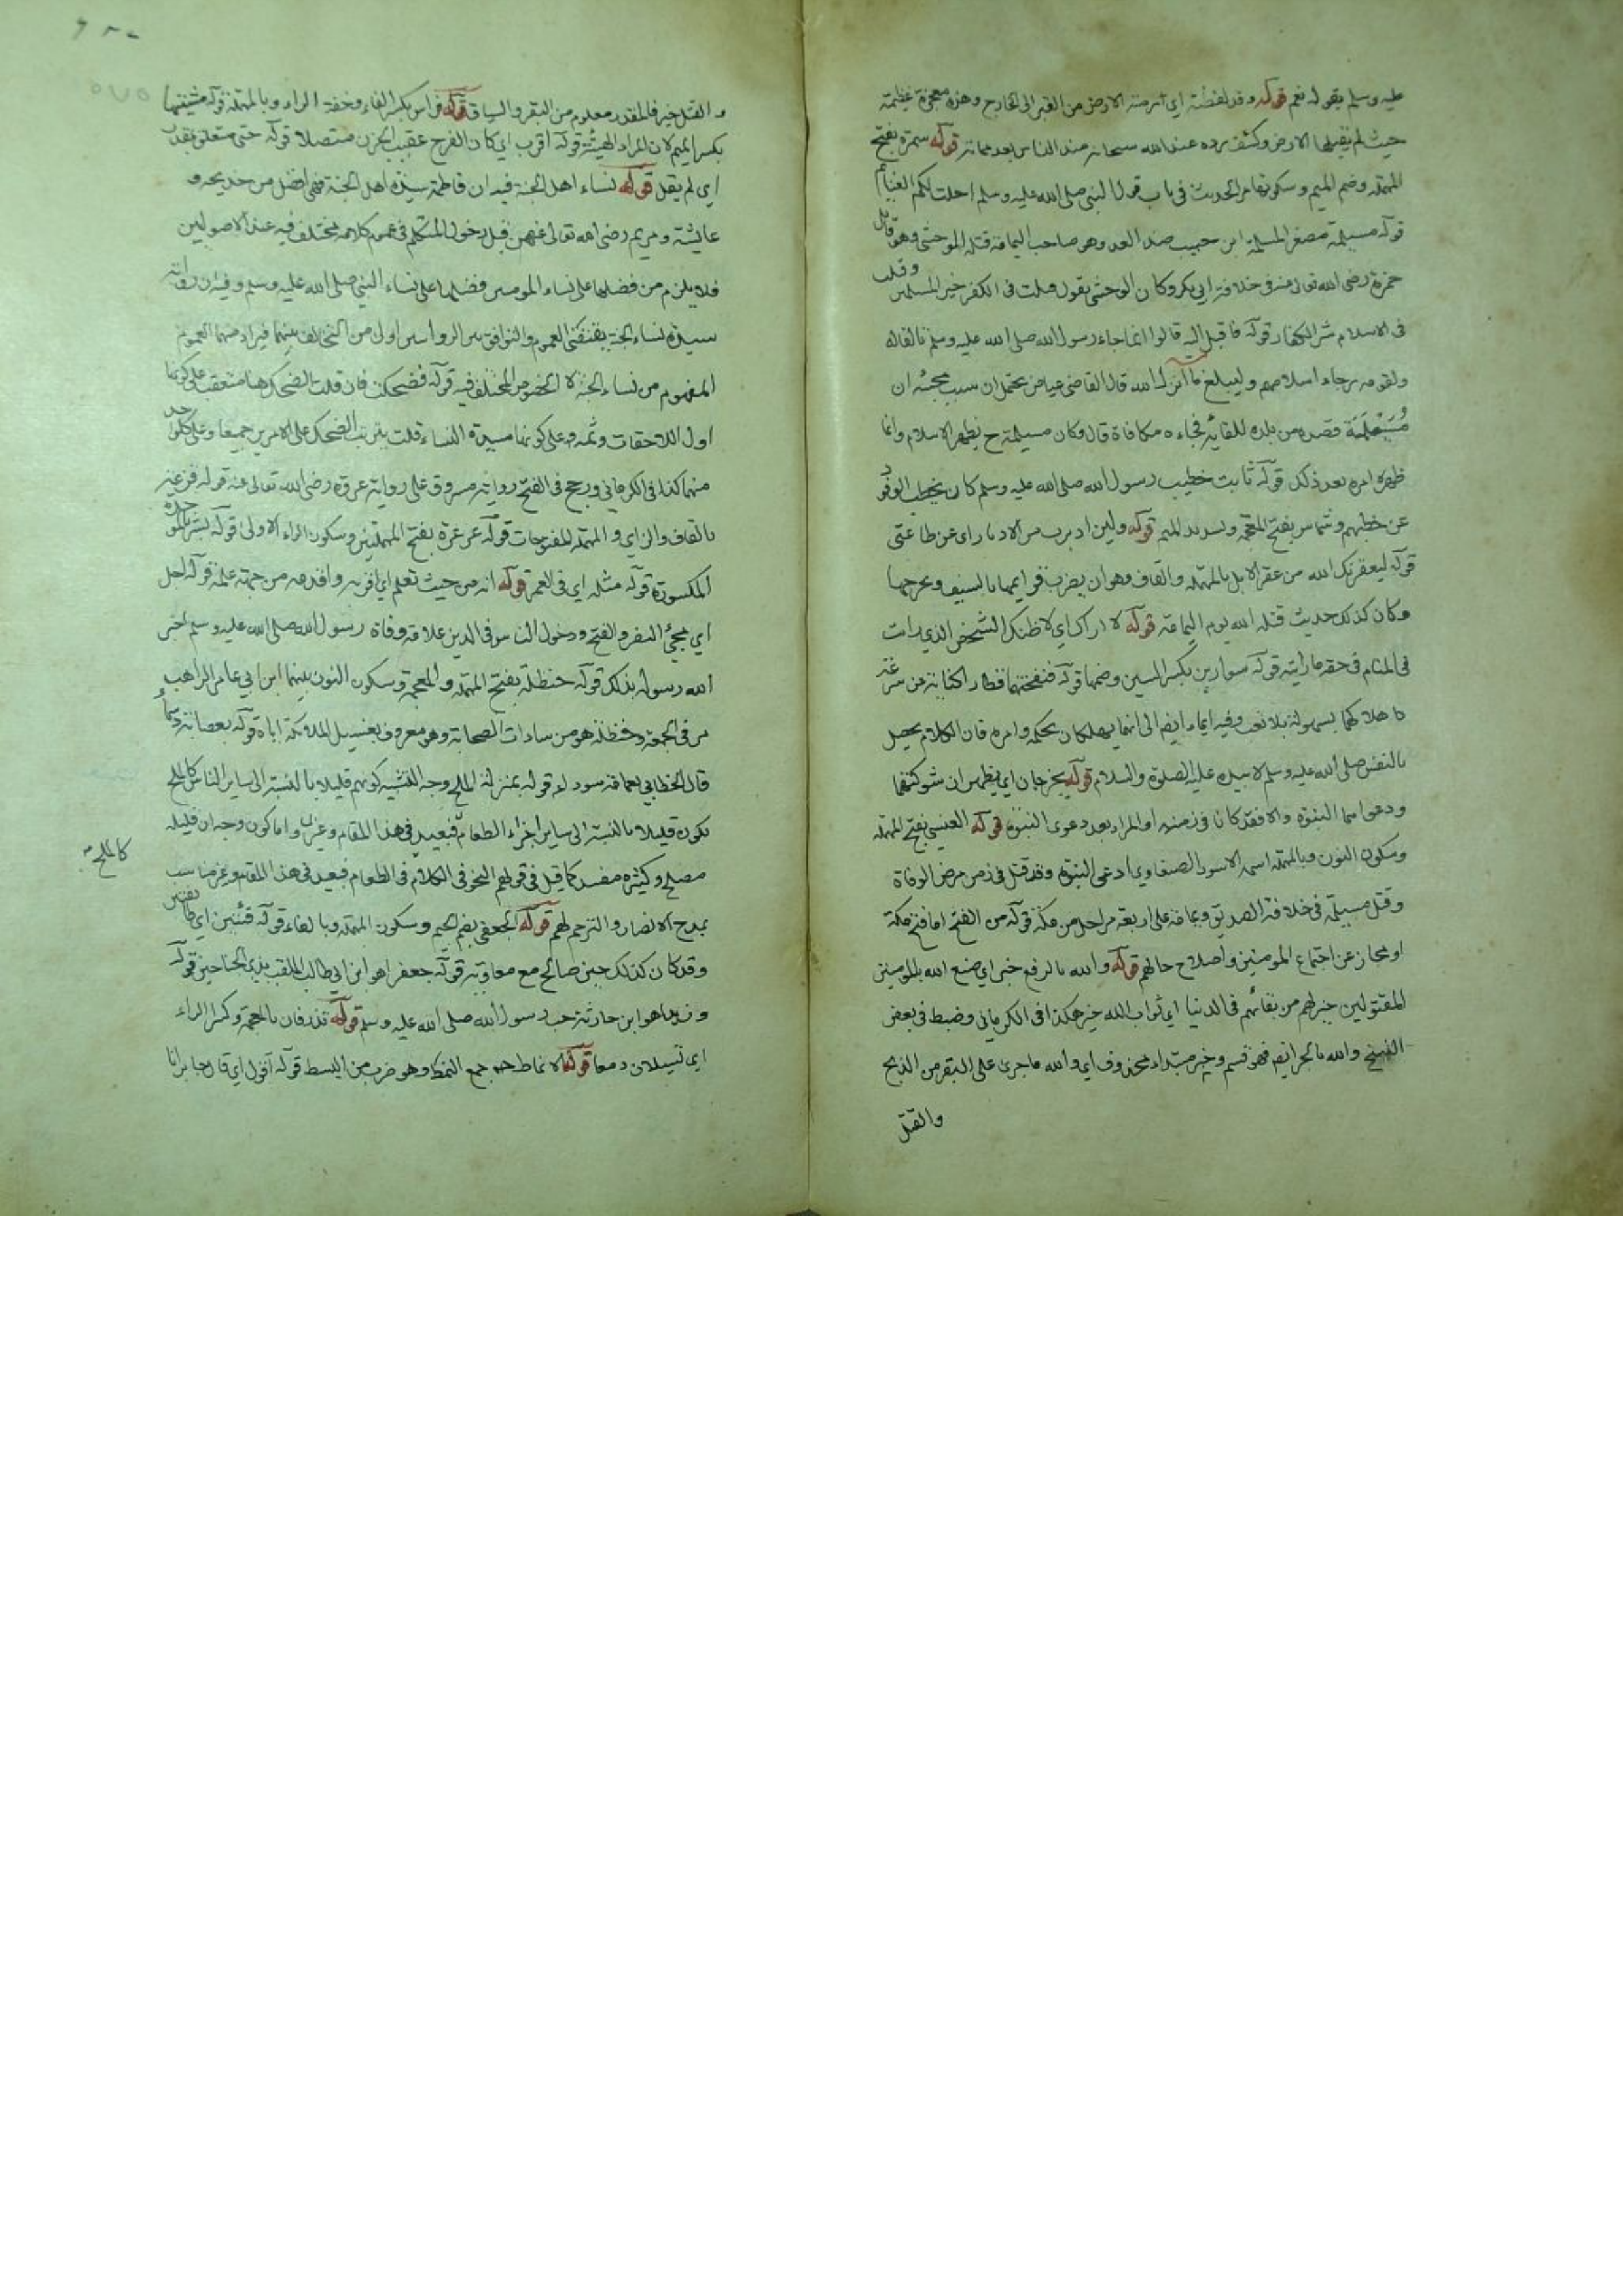 عليه وسلم بقوله نعم قوله وقد لفظته اي ثم رمته الارض من القبر الى الخارج وهذه معجزة عظيمة
حيث لم تقبلها الارض وكشف برده عند الله سبحانه عند الناس بعد مماته قوله سمرة بفتح
المهملة وضم الميم وسكونها مر الحديث في باب قول النبي صلى الله عليه وسلم احلت لكم الغنايم
قوله مسيلمة مصغر المسلمة ابن حبيب ضد العدو وهو صاحب اليمامة قتله الوحشي وهو قاتل
حمزة رضى الله تعالى عنه في خلافة ابي بكر وكان الوحشي يقول قتلت في الكفر خير المسلمين وقتلت
في الاسلام شر الكفار قوله فاقبل اليه قالوا انما جاءه رسول الله صلى الله عليه وسلم تالفا له
ولقومه رجاء اسلامهم وليبلغ ما انزل الله قال القاضي عياض يحتمل ان سبب مجيئه ان
مسيلمة قصده من بلده للقائه فجاءه مكافاة قال وكان مسيلمة ح يظهر الاسلام وانما
ظهر امره بعد ذلك قوله ثابت خطيب رسول الله صلى الله عليه وسلم كان يخطب الوفود
عن خطبهم وشماس بفتح المعجمة وتسديد الميم قوله ولين ادبرت من الادبار اى عن طاعتى
قوله ليعقرنك الله من عقر الابل بالمهملة والقاف وهو ان يضرب قوايمها بالسيف ويجرحها
وكان كذلك حديث قتله الله يوم اليمامة قوله لا اراك اي لا ظنك الشخص الذي رايت
في المنام في حقه ما رايته قوله سوارين بكسر السين وضمها قوله فنفختهما فطارا كناية عن سرعة
اهلاكهما بسهولة بلا تعب وفيه ايماء ايضا الى انهما يهلكان بحكمه وامره فان الكلام يحصل
بالنفس صلى الله عليه وسلم لا بيده عليه الصلوة والسلام قوله يخرجان اي يظهران شوكتهما
ودعواهما النبوة والا فقد كانا في زمنه او المراد بعد دعوى النبوة قوله العنسي بفتح المهملة
وسكون النون وبالمهملة اسمه الاسود الصنعاوي ادعى النبوة وقد قتل في زمن مرض الوفاة
وقتل مسيلمة في خلافة الصديق ويمامة على اربعة مراحل من مكة قوله من الفتح اما فتح مكة
او مجاز عن اجتماع المومنين واصلاح حالهم قوله والله بالرفع خبر اي صنع الله بالمومنين
المقتولين خير لهم من بقائهم في الدنيا اي ثواب الله خير هكذا في الكرماني وضبط في بعض
النسخ والله بالجر ايضا فهو قسم وخير مبتداء محذوف اي والله ما جرى على البقر من الذبح
والقتل
والقتل خير فالمقدر معلوم من البقر والسياق قوله فراس بكسر الفاء وخفة الراء وبالمهملة قوله مشيتها
بكسر الميم لان المراد الهيئة قوله اقرب اي كان الفرح عقيب الحزن متصلا قوله حتى متعلق بمقدر
اي لم يقل قوله نساء اهل الجنة فيه ان فاطمة سيدة اهل الجنة فهى افضل من خديجه و
عايشة ومريم رضى الله تعالى عنهن قبل دخول المتكلم في عموم كلامه مختلف فيه عند الاصوليين
فلا يلزم من فضلها على نساء المومنين فضلها على نساء النبي صلى الله عليه وسلم وفيه ان رواية
سيدة نساء الجنة يقتضي العموم والتوافق بين الروايتين اولى من التخالف بينهما فيراد منهما العموم
المفهوم من نساء الجنة لا الخصوص المختلف فيه قوله فضحكت فان قلت الضحك هنا متعقب على كونها
اول اللاحقات وثمه وعلى كونها سيدة النساء قلت يترتب الضحك على الامرين جميعا وعلى كل واحد
منهما كذا في الكرماني ورجح في الفتح رواية مسروق على رواية عروة رضى الله تعالى عنه قوله فزعته
بالقاف والزاي والمهملة المفتوحات قوله عرعرة بفتح المهملتين وسكون الراء الاولى قوله بشر بالموحدة
المكسورة قوله مثله اي في العمر قوله انه من حيث تعلم اي اقربه واقدمه من جهة علمه قوله اجل
اي مجئ النصر والفتح ودخول الناس في الدين علامة وفاة رسول الله صلى الله عليه وسلم اخبر
الله رسوله بذلك قوله حنظلة بفتح المهملة والمعجمة وسكون النون بينهما ابن ابي عامر الراهب
مر في الجمعة وحنظلة هو من سادات الصحابة وهو معروف بغسيل الملائكة اباه قوله بعصابة دسماء
قال الخطابي بعمامة سوداء قوله بمنزلة الملح وجه التشبيه كونهم قليلا بالنسبة الى ساير الناس كالملح
يكون قليلا بالنسبة الى ساير اجزاء الطعام فبعيد في هذا المقام وغرض واما كون وجه ان قليله
مصلح وكثيره مفسد كما قيل في قولهم النحو في الكلام في الطعام فبعيد في هذا المقام وغير مناسب
بمدح الانصار والترحم لهم قوله الجعفي بضم الجيم وسكون المهملة وبالفاء قوله فئتين اي طايفتين
وقد كان كذلك حين صالح مع معاوية قوله جعفرا هو ابن ابي طالب الملقب بذي الجناحين قوله
وزيدا هو ابن حارثة حب رسول الله صلى الله عليه وسلم قوله تذرفان بالمعجمة وكسر الراء
اي تسيلان دمعا قوله الانماط جمع النمط وهو ضرب من البسط قوله اقول اي قال جابر انا
كالملح